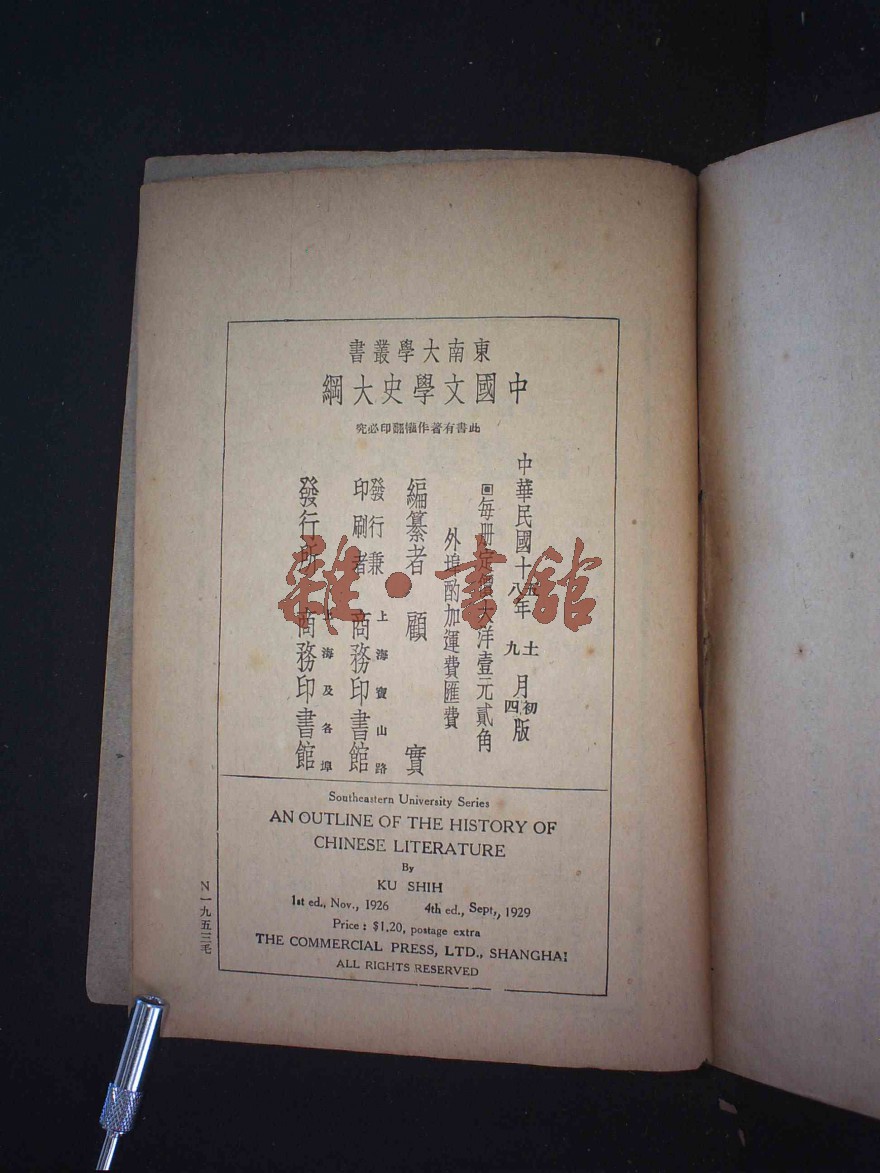 東南大學叢書
中國文學史大綱
此書有著作權翻印必究
中華民國十五年十一月初版
中華民國十八年九月四版
回每冊定價大洋壹元貳角
外埠酌加運費匯費
編纂者 顧實
發行兼印刷者 上海寶山路 商務印書館
發行所 上海及各埠 商務印書館
Southeastern University Series
AN OUTLINE OF THE HISTORY OF
CHINESE LITERATURE
By
KU SHIH
1st ed., Nov., 1926 4th ed., Sept., 1929
Price : $1.20, postage extra
THE COMMERCIAL PRESS, LTD., SHANGHAI
ALL RIGHTS RESERVED
N一九五三毛
雜·書館